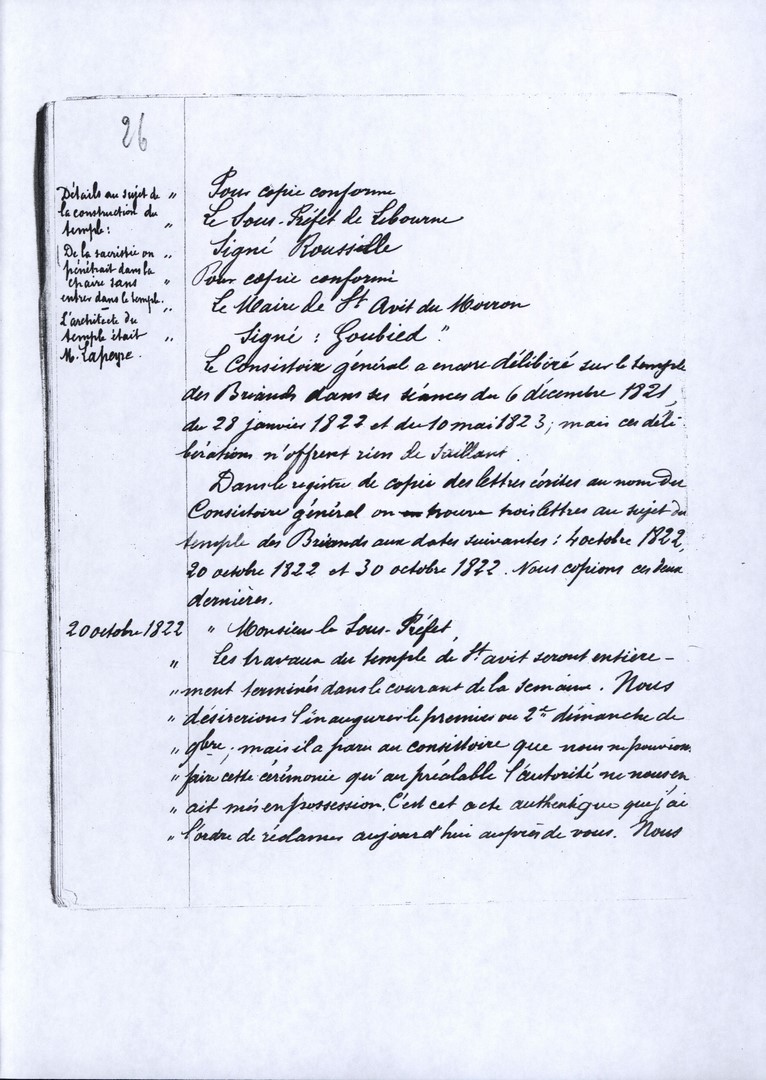 26
Détails au sujet de "
la construction du
temple : "
De la sacristie on "
pénétrait dans la
chaire sans "
entrer dans le temple.
L'architecte du "
temple était "
M. Lapeyre.
Pour copie conforme
Le Sous-Préfet de Libourne
Signé Roussille
Pour copie conforme
Le Maire de St Avit du Moiron
Signé : Goubied."
Le Consistoire général a encore délibéré sur le temple
des Briands dans ses séances du 6 décembre 1821,
du 28 janvier 1822 et du 10 mai 1823 ; mais ces déli-
bérations n'offrent rien de saillant.
Dans le registre de copie des lettres écrites au nom du
Consistoire général on trouve trois lettres au sujet du
temple des Briands aux dates suivantes : 4 octobre 1822,
20 octobre 1822 et 30 octobre 1822. Nous copions ces deux
dernières.
20 octobre 1822 " Monsieur le Sous-Préfet,
" Les travaux du temple de St avit seront entière-
" ment terminés dans le courant de la semaine. Nous
" désirerions l'inaugurer le premier ou 2e dimanche de
" 9bre ; mais il a paru au consistoire que nous ne pouvions
" faire cette cérémonie qu'au préalable l'autorité ne nous en
" ait mis en possession. C'est cet acte authentique que j'ai
" l'ordre de réclamer aujourd'hui auprès de vous. Nous